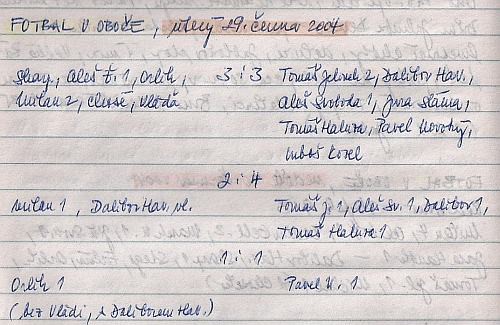 FOTBAL V OBOŘE, úterý 29. června 2004
Aleš Ž. 1, Orlik, 3 : 3 Tomáš Jelinek 2, Dalibor Hav.,
Milan 2, Vláďa Aleš Svoboda 1, Jura Sláma,
Tomáš Halura, Pavel Novotný,
Luboš Korel
2 : 4
Milan 1, Dalibor Hav. vl. Tomáš J. 1, Aleš Sv. 1, Dalibor 1,
Tomáš Halura 1
1 : 1
Orlik 1 Pavel N. 1
(bez Vládi, s Daliborem Hav.)